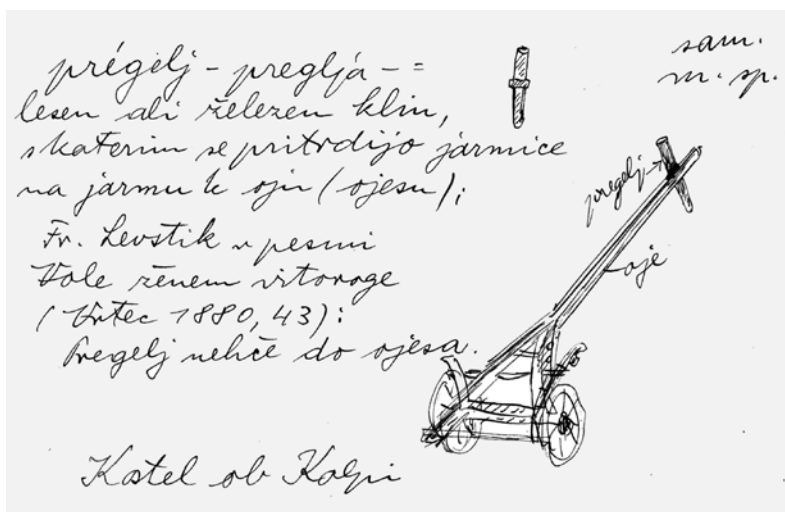 prégelj - preglja - =
lesen ali železen klin,
s katerim se pritrdijo jarmice
na jarmu k oju (ojesu);
Fr. Levstik v pesmi
Vole ženem vitoroge
(Vrtec 1880, 43):
Pregelj nehče do ojesa.
Kostel ob Kolpi
sam.
m. sp.
pregelj
oje